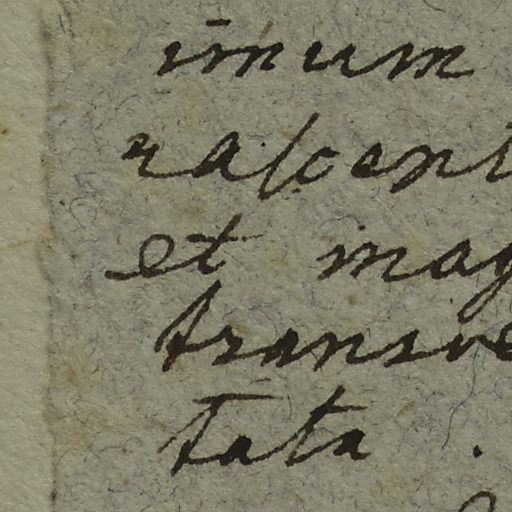 imum
rascent
et mag
transve
tata .